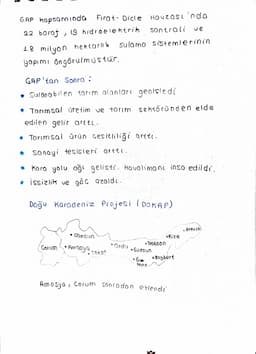 GAP kapsamında Fırat-Dicle Havzası'nda
22 baraj, 19 hidroelektrik santrali ve
1.8 milyon hektarlık sulama sistemlerinin
yapımı öngörülmüştür.
GAP'tan Sonra:
• Sulanabilen tarım alanları genişledi
• Tarımsal üretim ve tarım sektöründen elde
edilen gelir arttı.
• Tarımsal ürün çeşitliliği arttı.
• Sanayi tesisleri arttı.
• Kara yolu ağı gelişti. Havalimanı inşa edildi.
• İşsizlik ve göç azaldı.
Doğu Karadeniz Projesi (DOKAP)
Artvin
Rize
Samsun
Trabzon
Ordu
Giresun
Çorum
Amasya
Tokat
Bayburt
Amasya, Çorum sonradan eklendi